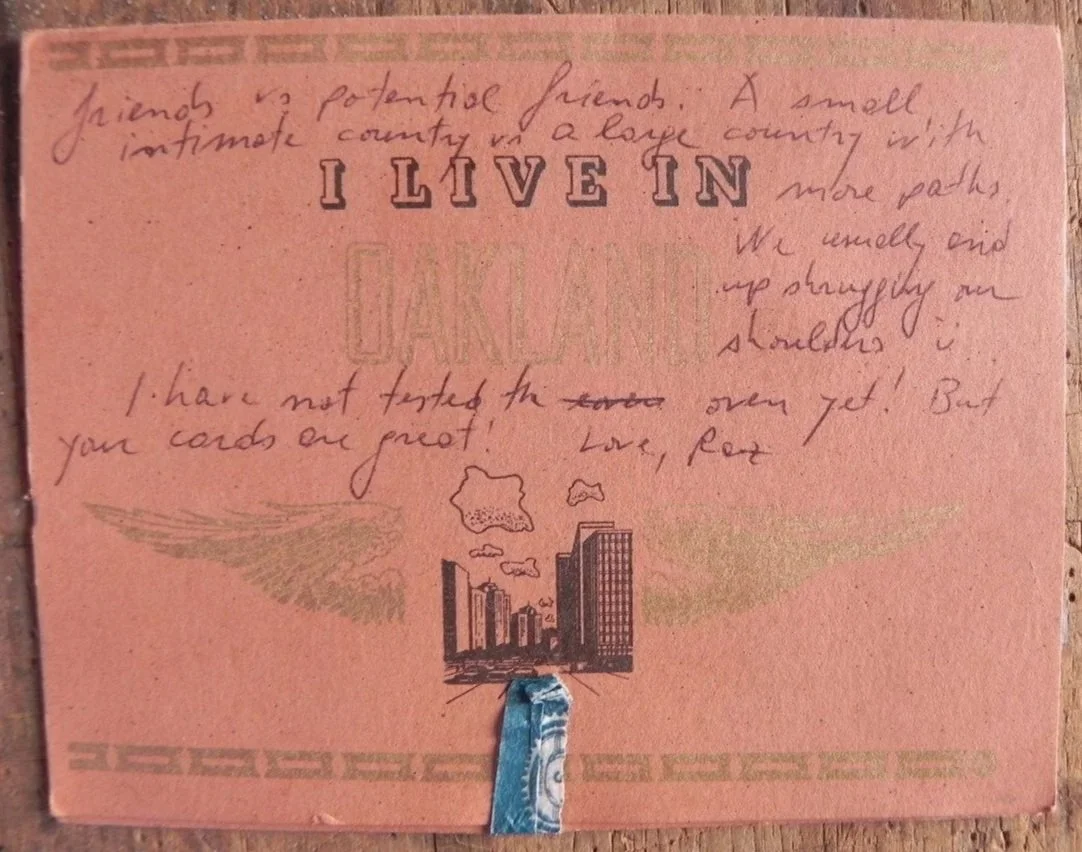 friends vs potential friends. A small
intimate country vs a large country with
I LIVE IN
more paths.
OAKLAND
We usually end
up shrugging our
shoulders
I have not tested the oven yet! But
your cards are great! Love, Raz